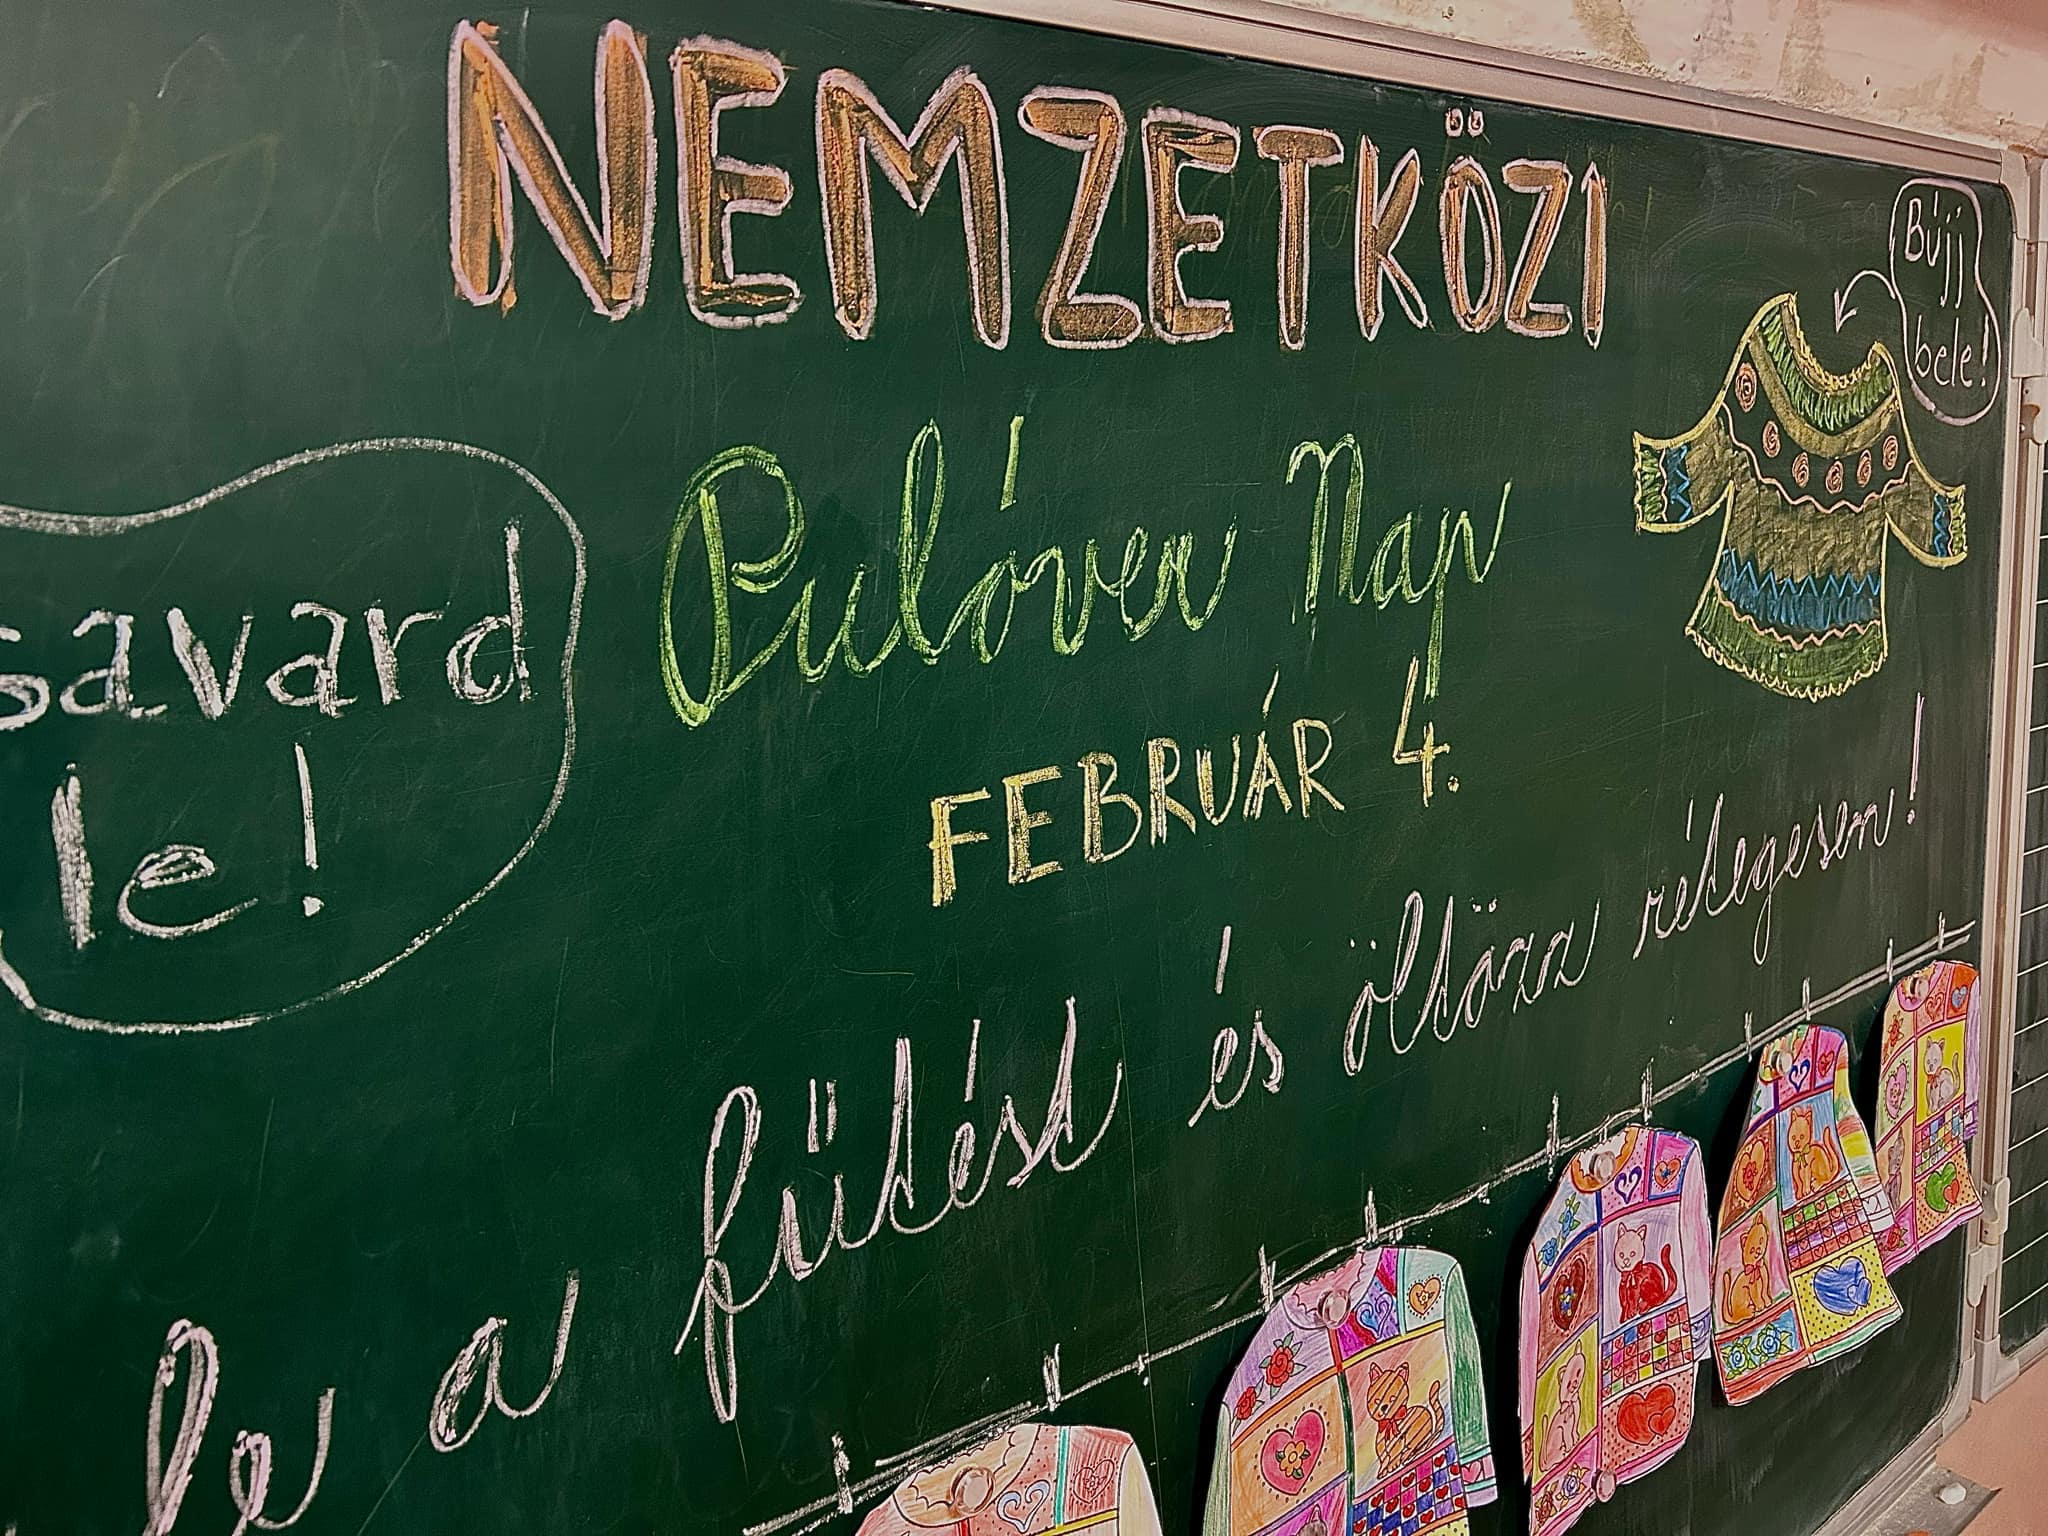 NEMZETKÖZI
Bújj
bele!
Pulóver Nap
FEBRUÁR 4.
savard
le!
le a fűtést és öltözz rétegesen!